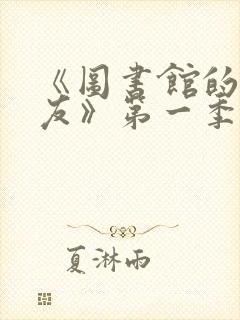 《圖書館的
友》第一季
夏淋雨